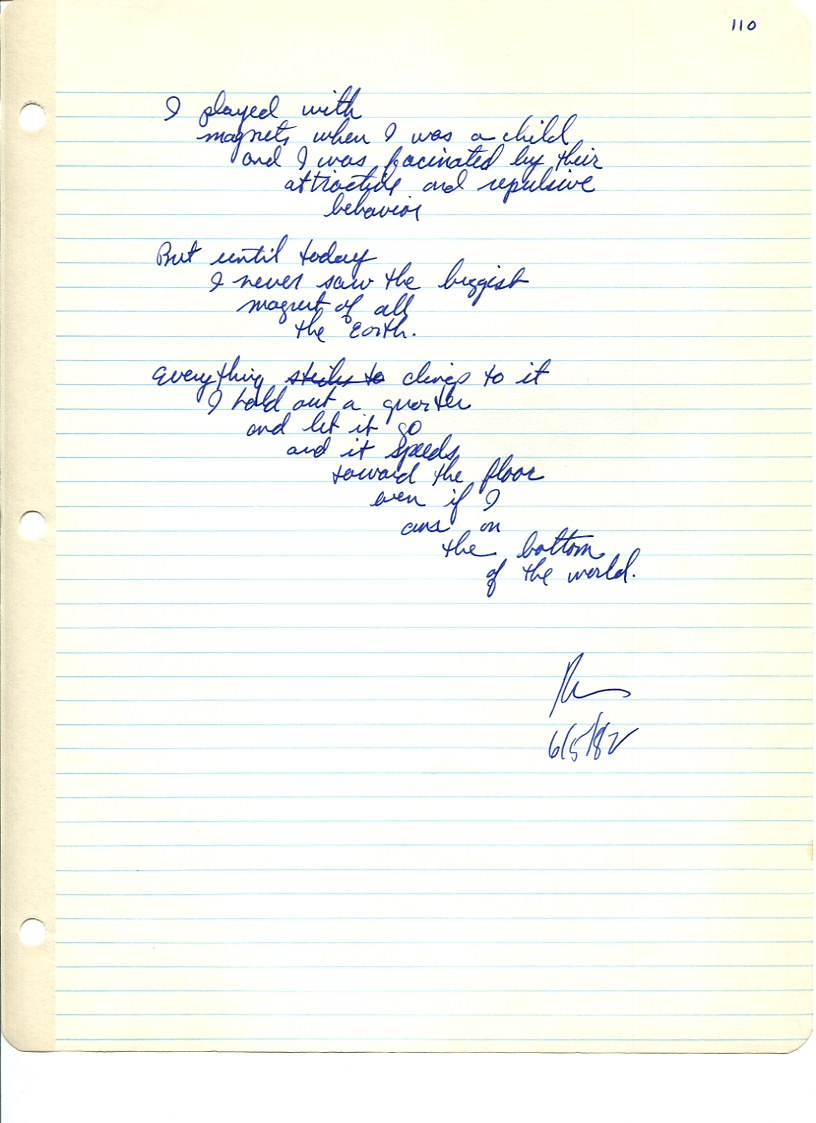 110
I played with
magnets when I was a child
and I was facinated by their
attractive and repulsive
behavior
But until today
I never saw the biggest
magnet of all
the Earth.
Everything sticks to clings to it
I hold out a quarter
and let it go
and it speeds
toward the floor
even if I
am on
the bottom
of the world.
6/5/82